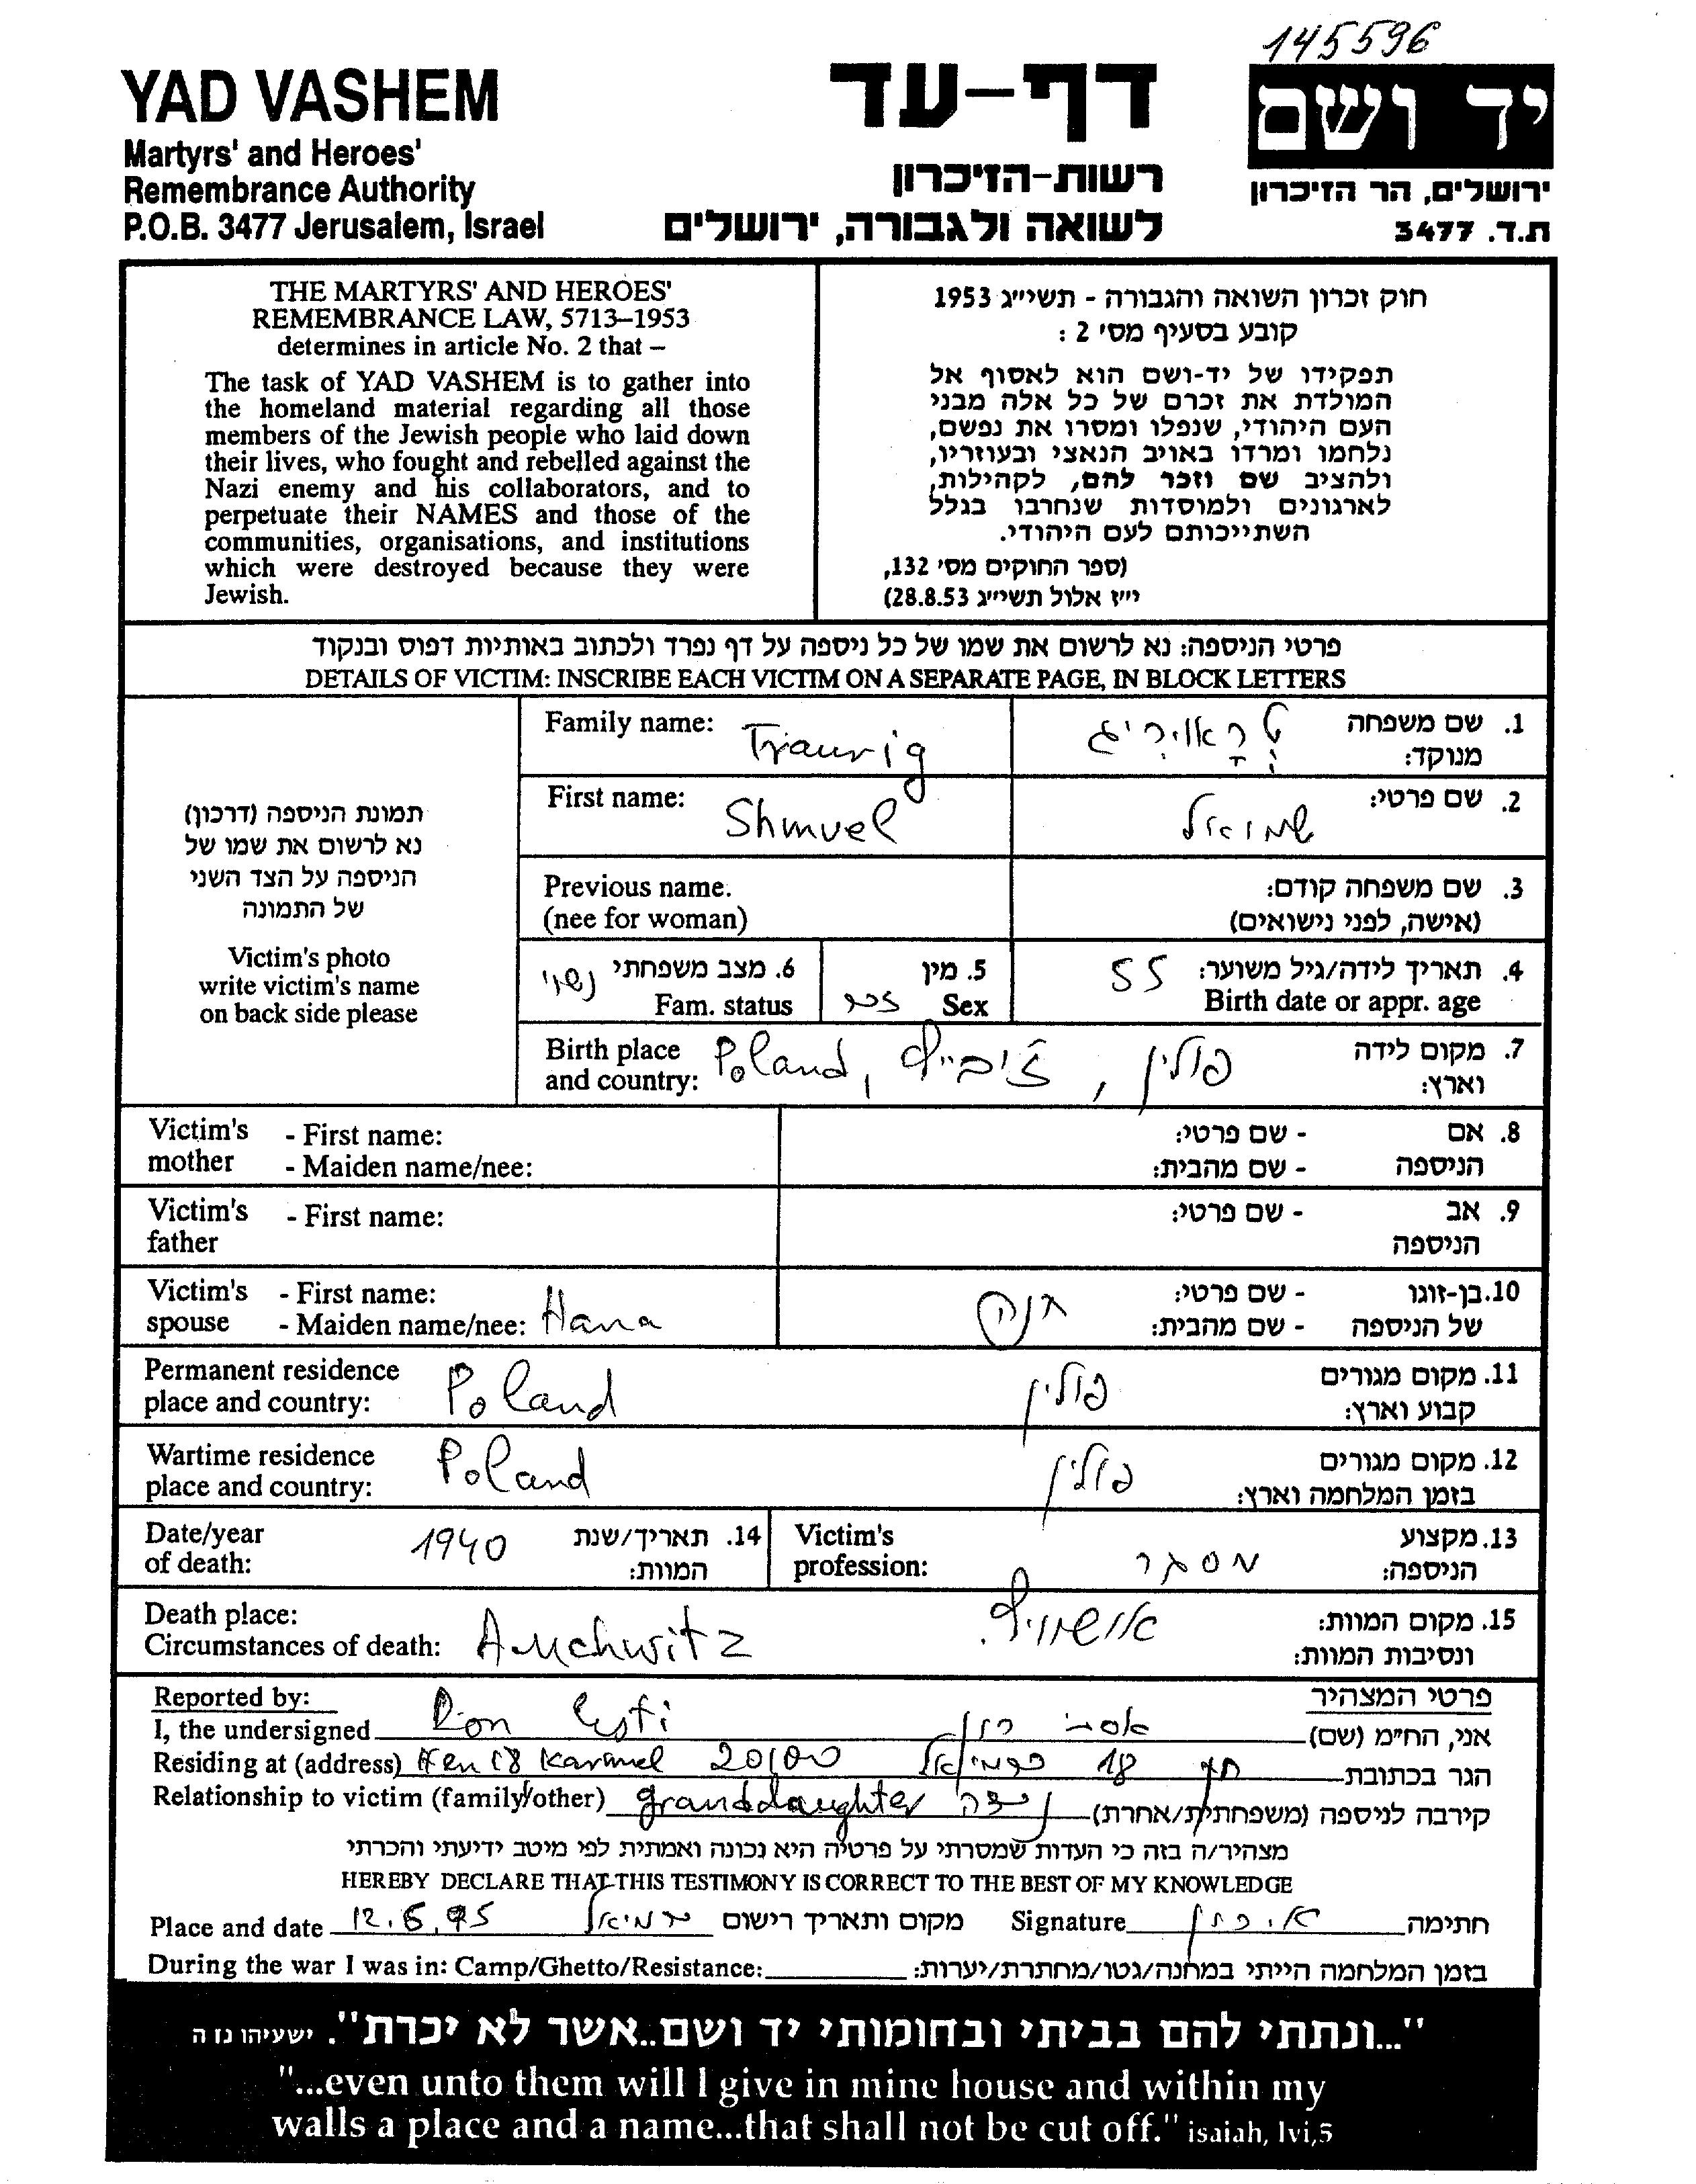 145596
YAD VASHEM
Martyrs' and Heroes'
Remembrance Authority
P.O.B. 3477 Jerusalem, Israel
דף-עד
רשות-הזיכרון
לשואה ולגבורה, ירושלים
יד ושם
ירושלים, הר הזיכרון
ת.ד. 3477
THE MARTYRS' AND HEROES'
REMEMBRANCE LAW, 5713–1953
determines in article No. 2 that –
The task of YAD VASHEM is to gather into
the homeland material regarding all those
members of the Jewish people who laid down
their lives, who fought and rebelled against the
Nazi enemy and his collaborators, and to
perpetuate their NAMES and those of the
communities, organisations, and institutions
which were destroyed because they were
Jewish.
חוק זכרון השואה והגבורה - תשי״ג 1953
קובע בסעיף מס׳ 2 :
תפקידו של יד-ושם הוא לאסוף אל
המולדת את זכרם של כל אלה מבני
העם היהודי, שנפלו ומסרו את נפשם,
נלחמו ומרדו באויב הנאצי ובעוזריו,
ולהציב שם וזכר להם, לקהילות,
לארגונים ולמוסדות שנחרבו בגלל
השתייכותם לעם היהודי.
(ספר החוקים מס׳ 132,
י״ז אלול תשי״ג 28.8.53)
פרטי הניספה: נא לרשום את שמו של כל ניספה על דף נפרד ולכתוב באותיות דפוס ובנקוד
DETAILS OF VICTIM: INSCRIBE EACH VICTIM ON A SEPARATE PAGE, IN BLOCK LETTERS
תמונת הניספה (דרכון)
נא לרשום את שמו של
הניספה על הצד השני
של התמונה
Victim's photo
write victim's name
on back side please
Family name: Traurig
1. שם משפחה טְרָאוּרִיג
מנוקד:
First name: Shmuel
2. שם פרטי: שמואל
Previous name.
(nee for woman)
3. שם משפחה קודם:
(אישה, לפני נישואים)
6. מצב משפחתי נשוי
Fam. status
5. מין זכר
Sex
4. תאריך לידה/גיל משוער: 55
Birth date or appr. age
Birth place
and country: Poland,
7. מקום לידה פולין,
וארץ:
Victim's - First name:
mother - Maiden name/nee:
8. אם - שם פרטי:
הניספה - שם מהבית:
Victim's - First name:
father
9. אב - שם פרטי:
הניספה
Victim's - First name:
spouse - Maiden name/nee: Hana
10. בן-זוגו - שם פרטי: חנה
של הניספה - שם מהבית:
Permanent residence
place and country: Poland
11. מקום מגורים פולין
קבוע וארץ:
Wartime residence
place and country: Poland
12. מקום מגורים פולין
בזמן המלחמה וארץ:
Date/year
of death: 1940
14. תאריך/שנת
המוות:
Victim's
profession:
13. מקצוע מסגר
הניספה:
Death place:
Circumstances of death: Auchwitz
15. מקום המוות: אושוויץ.
ונסיבות המוות:
Reported by:
פרטי המצהיר
I, the undersigned Ron Esti
אני, הח״מ (שם) אסתי רון
Residing at (address) Hen 18 Karmel 20100
הגר בכתובת חן 18 כרמיאל
Relationship to victim (family/other) granddaughter
קירבה לניספה (משפחתית/אחרת) נכדה
מצהיר/ה בזה כי העדות שמסרתי על פרטיה היא נכונה ואמתית לפי מיטב ידיעתי והכרתי
HEREBY DECLARE THAT THIS TESTIMONY IS CORRECT TO THE BEST OF MY KNOWLEDGE
Place and date 12.6.95 כרמיאל מקום ותאריך רישום
Signature א. רון חתימה
During the war I was in: Camp/Ghetto/Resistance:
בזמן המלחמה הייתי במחנה/גטו/מחתרת/יערות:
"...ונתתי להם בביתי ובחומותי יד ושם..אשר לא יכרת". ישעיהו נז ה
"...even unto them will I give in mine house and within my
walls a place and a name...that shall not be cut off." isaiah, lvi,5